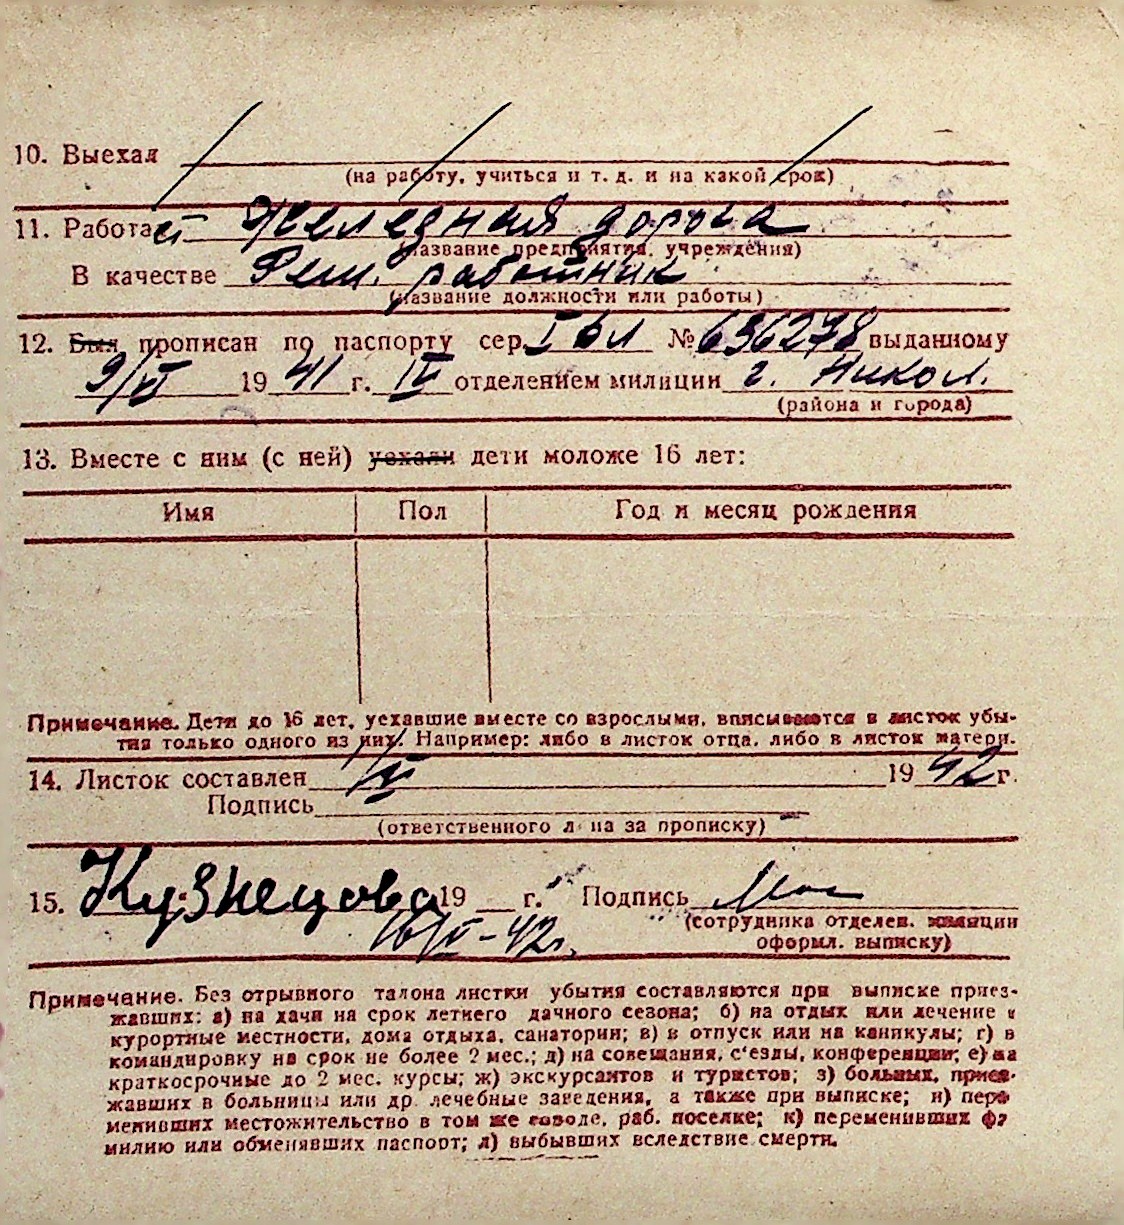 10. Выехал
(на работу, учиться и т. д. и на какой срок)
11. Работает Железная дорога
(название предприятия, учреждения)
В качестве Рем. работник
(название должности или работы)
12. Был прописан по паспорту сер. I бл №636278 выданному
9/VI 1941 г. IV отделением милиции г. Никол.
(района и города)
13. Вместе с ним (с ней) уехали дети моложе 16 лет:
Имя Пол Год и месяц рождения
Примечание. Дети до 16 лет, уехавшие вместе со взрослыми, вписываются в листок убы-
тия только одного из них. Например: либо в листок отца, либо в листок матери.
14. Листок составлен 1942 г.
Подпись
(ответственного л на за прописку)
15. Кузнецова 19 г. Подпись
16/VI-42г. (сотрудника отделен. милиции
оформл. выписку)
Примечание. Без отрывного талона листки убытия составляются при выписке приез-
жавших: а) на дачи на срок летнего дачного сезона; б) на отдых или лечение в
курортные местности, дома отдыха, санатории; в) в отпуск или на каникулы; г) в
командировку на срок не более 2 мес.; д) на совещания, с'езды, конференции; е) на
краткосрочные до 2 мес. курсы; ж) экскурсантов и туристов; з) больных, приез-
жавших в больницы или др. лечебные заведения, а также при выписке; и) пере
менивших местожительство в том же городе, раб. поселке; к) переменивших фа
милию или обменявших паспорт; л) выбывших вследствие смерти.